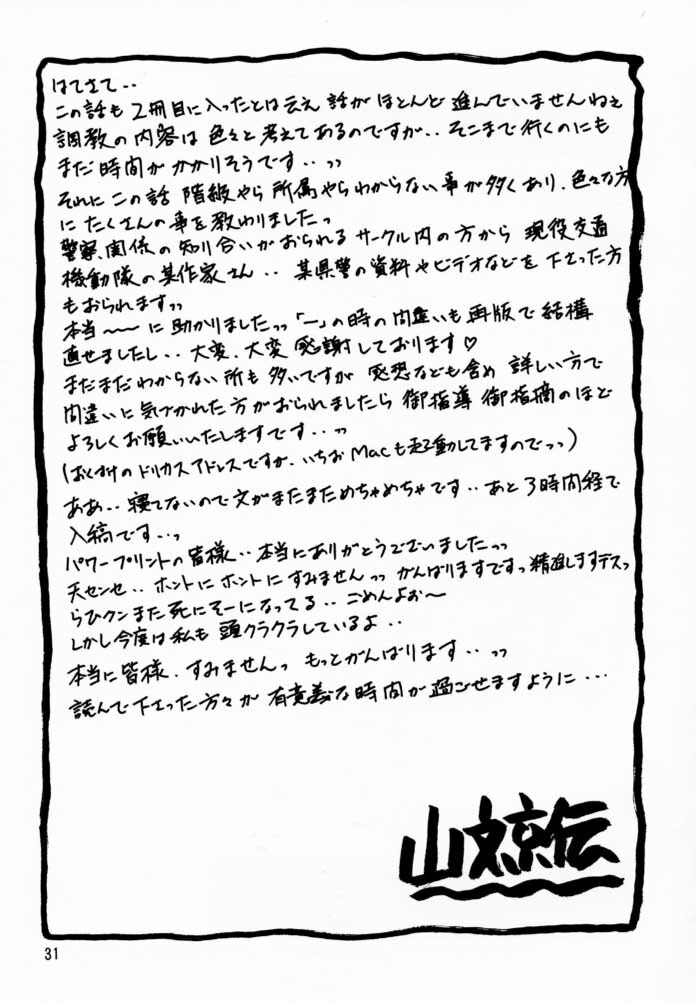 はてさて‥
この話も2冊目に入ったとは云え話がほとんど進んでいませんねぇ
調教の内容は色々と考えてあるのですが‥そこまで行くのにも
まだ時間がかかりそうです‥っっ
それにこの話 階級やら所属やらわからない事が多くあり、色々な方
にたくさんの事を教わりましたっ
警察関係の知り合いがおられるサークル内の方から 現役交通
機動隊の某作家さん‥ 某県警の資料やビデオなどを下さった方
もおられますっっ
本当〜〜に助かりましたっっ「一」の時の間違いも再版で結構
直せましたし‥大変、大変感謝しております♡
まだまだわからない所も多いですが 感想なども含め 詳しい方で
間違いに気づかれた方がおられましたら御指導 御指摘のほど
よろしくお願いいたしますです‥っっ
(おくずけのドリカスアドレスですが、いちおMacも起動してますのでっっ)
ああ‥寝てないので文がまたまためちゃめちゃです‥あと3時間程で
入稿です‥っ
パワープリントの皆様‥本当にありがとうございましたっっ
天センセ‥ホントにホントにすみませんっっ がんばりますですっ精進しますデスっ
らひクンまた死にそーになってる‥ごめんよお〜
しかし今度は私も頭クラクラしているよ‥
本当に皆様、すみませんっ もっとがんばります‥っっ
読んで下さった方々が 有意義な時間が過ごせますように…
山文京伝
31